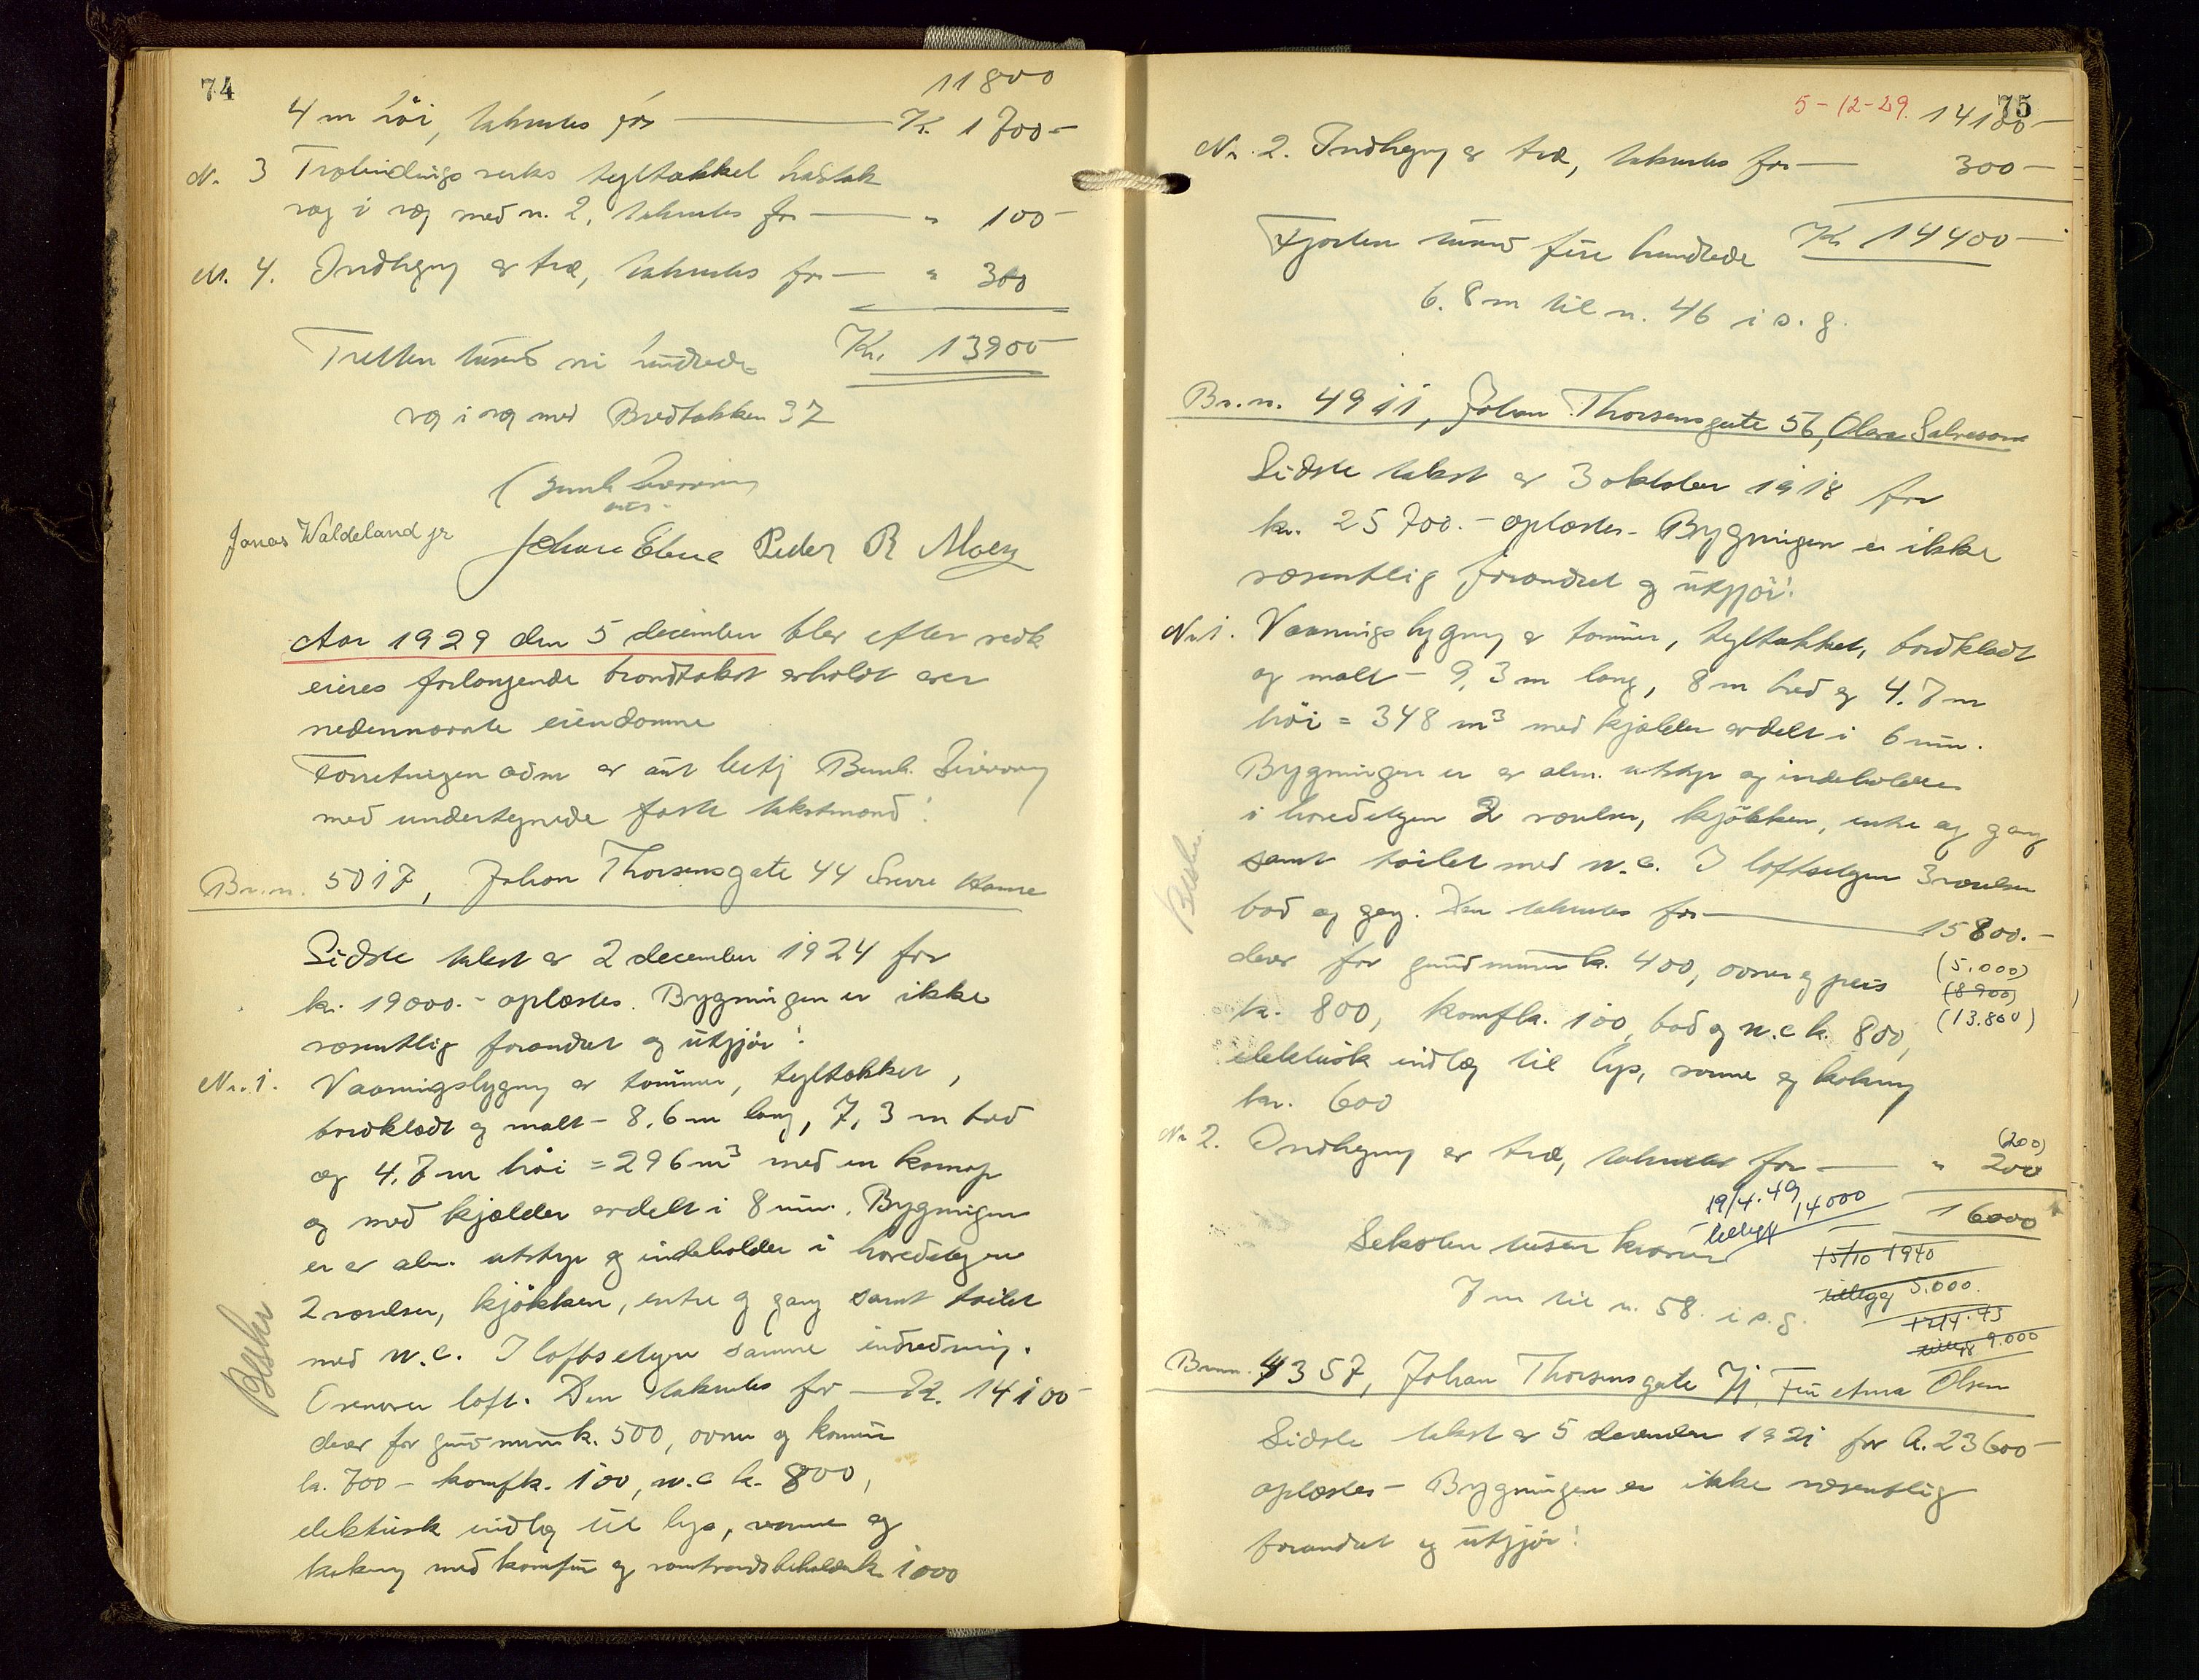 74
11800
4 m høi, takseres for — Kr. 1700-
Nr. 3 Træbindingsverks tegltækket halvtak
væg i væg med nr. 2, takseres for — " 100-
Nr. 4. Indhegning av træ, takseres for — " 300
Tretten tusind ni hundrede Kr. 13900-
væg i væg med Bredbakken 37
Jonas Waldeland jr Peder R Moen
Aar 1929 den 5 december blev efter vedk
eieres forlangende brandtakst avholdt over
nedennævnte eiendomme
Forretningen adm av aut betj Bernh.
med undertegnede faste takstmænd:
Br.nr. 5017, Johan Thorsensgate 44 Sverre Hanne
Sidste takst av 2 december 1924 for
kr. 19000.- oplæstes. Bygningen er ikke
væsentlig forandret og utgjør:
Nr. 1. Vaaningsbygning av tømmer, tegltækket,
bordklædt og malt - 8,6 m lang, 7,3 m bred
og 4,7 m høi = 296 m³ med en kvmap
og med kjælder avdelt i 8 rum. Bygningen
er av alm. utstyr og indeholder i hovedetagen
2 værelser, kjøkken, entre og gang samt toilet
med w.c. I loftsetagen samme indredning.
Ovenover loft. Den takseres for — Kr. 14100-
derav for grundmur k. 500, ovner og kamin
kr. 700 - komf k. 100, w.c k. 800,
elektrisk indlæg til lys, varme og
kokning med komfur og varmtvandsbeholder k. 1000
Beskr
75
5-12-29. 14100-
Nr. 2. Indhegning av træ, takseres for — 300-
Fjorten tusind fire hundrede Kr 14400-
6.8 m til nr. 46 i s. g.
Br.nr. 4911, Johan Thorsensgate 56, Olava Salvesen
Sidste takst av 3 oktober 1918 for
kr. 25700.- oplæstes- Bygningen er ikke
væsentlig forandret og utgjør:
Nr. 1. Vaaningsbygning av tømmer, tegltækket, bordklædt
og malt - 9,3 m lang, 8 m bred og 4.7 m
høi = 348 m³ med kjælder avdelt i 6 rum.
Bygningen er av alm. utstyr og indeholder
i hovedetagen 2 værelser, kjøkken, entre og gang
samt toilet med w.c. I loftsetagen 3 værelser
bad og gang. Den takseres for — 15800.-
derav for grundmur k. 400, ovner og peis (5.000)
(8900)
kr. 800, komf k. 100, bad og w.c k. 800, (13.800)
elektrisk indlæg til lys, varme og kokning
kr. 600
Beskr.
Nr 2. Indhegning av træ, takseres for — " 200 (200)
19/4.49 14000
tillegg
16000
Seksten tusen kroner
15/10 1940
tillegg 5.000.
7 m til nr. 58. i s. g.
tillegg 9.000
Br.nr. 4357, Johan Thorsensgate 71, Fru Anna Olsen
Sidste takst av 5 december 1921 for k. 23600-
oplæstes - Bygningen er ikke væsentlig
forandret og utgjør: